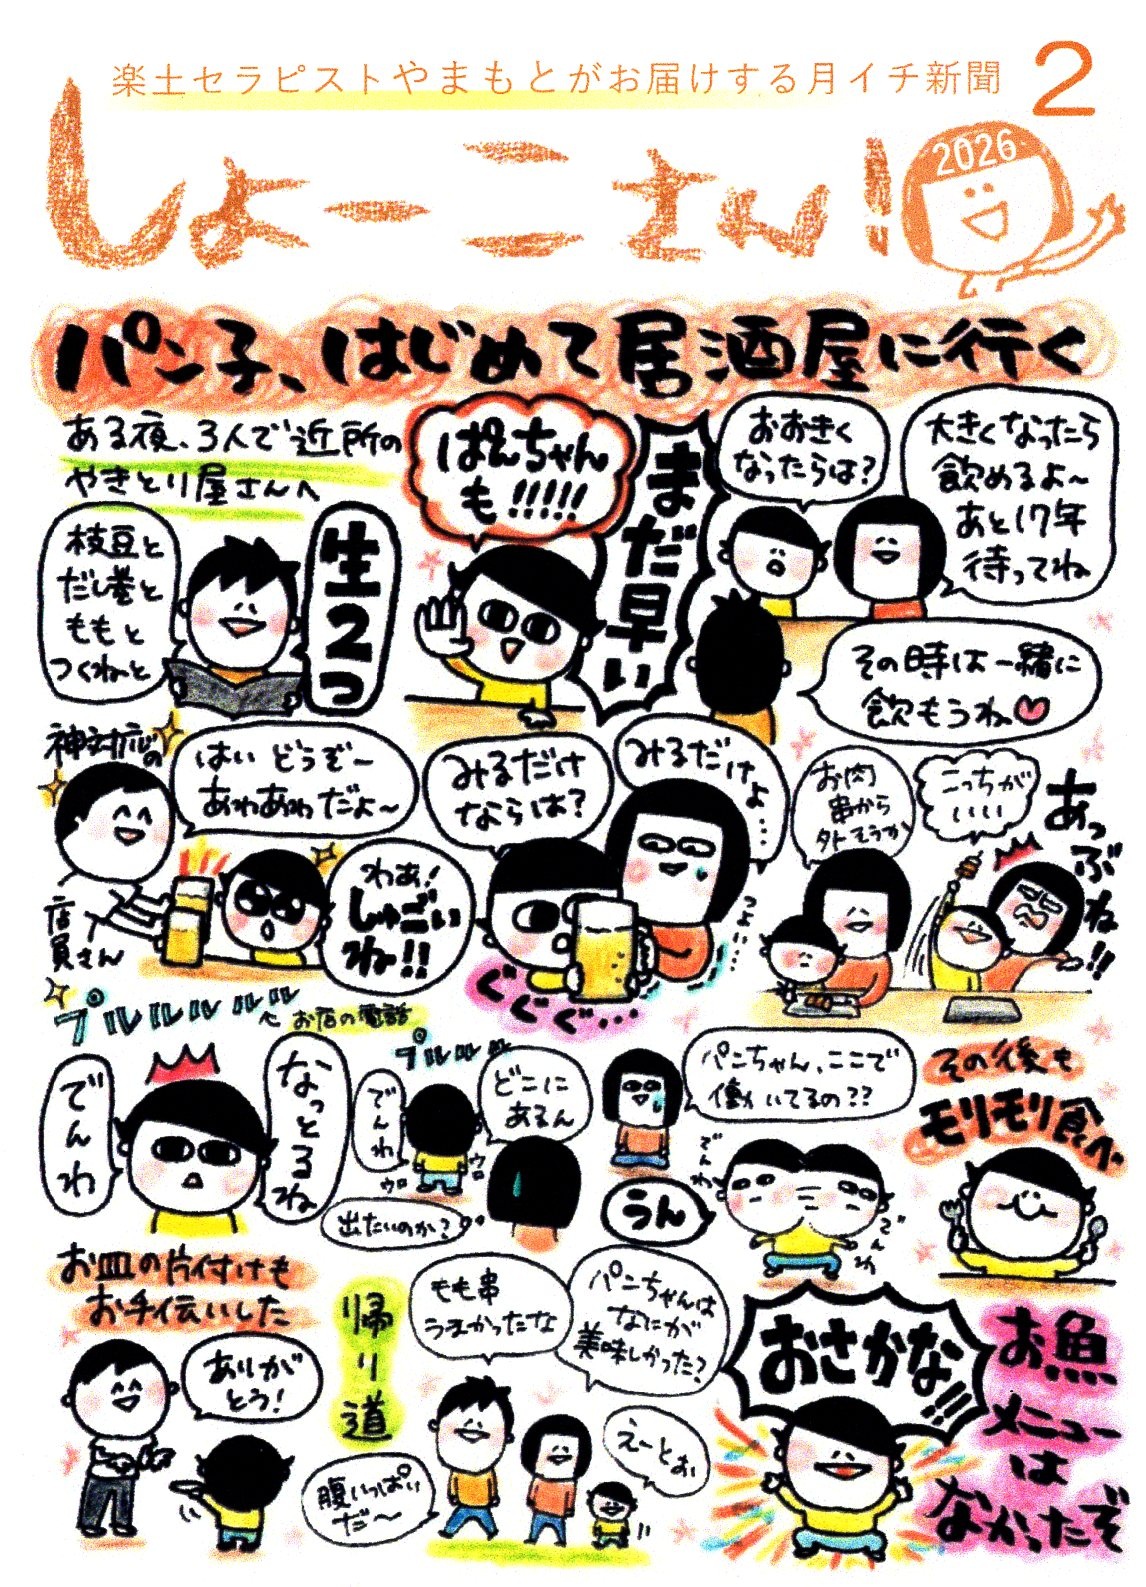 楽土セラピストやまもとがお届けする月イチ新聞
2
しょーこさん!
2026
パン子、はじめて居酒屋に行く
ある夜、3人で近所の
やきとり屋さんへ
枝豆と
だし巻と
ももと
つくねと
生2つ
ぱんちゃん
も!!!!!
まだ早い
おおきく
なったらは?
大きくなったら
飲めるよ〜
あと17年
待ってね
その時は一緒に
飲もうね♡
神対応の
店員さん
はい どうぞ〜
あわあわだよ〜
わぁ!
しゅごい
ね!!
みるだけ
ならは?
みるだけよ…
ぐぐぐ…
つよい…
お肉
串から
外そうか
こっちが
いい
あっぶね!!
プルルルルル
お店の電話
でんわ
なっとるね
プルルルル
でんわ
どこに
あるん
ウロ
ウロ
出たいのか?
パンちゃん、ここで
働いてるの??
うん
でんわ
でんわ
その後も
モリモリ食べ
お皿の片付けも
お手伝いした
ありがとう!
帰り道
もも串
うまかったな
パンちゃんは
なにが
美味しかった?
腹いっぱい
だ〜
えーとぉ
おさかな!!!
お魚
メニュー
は
なかったぞ